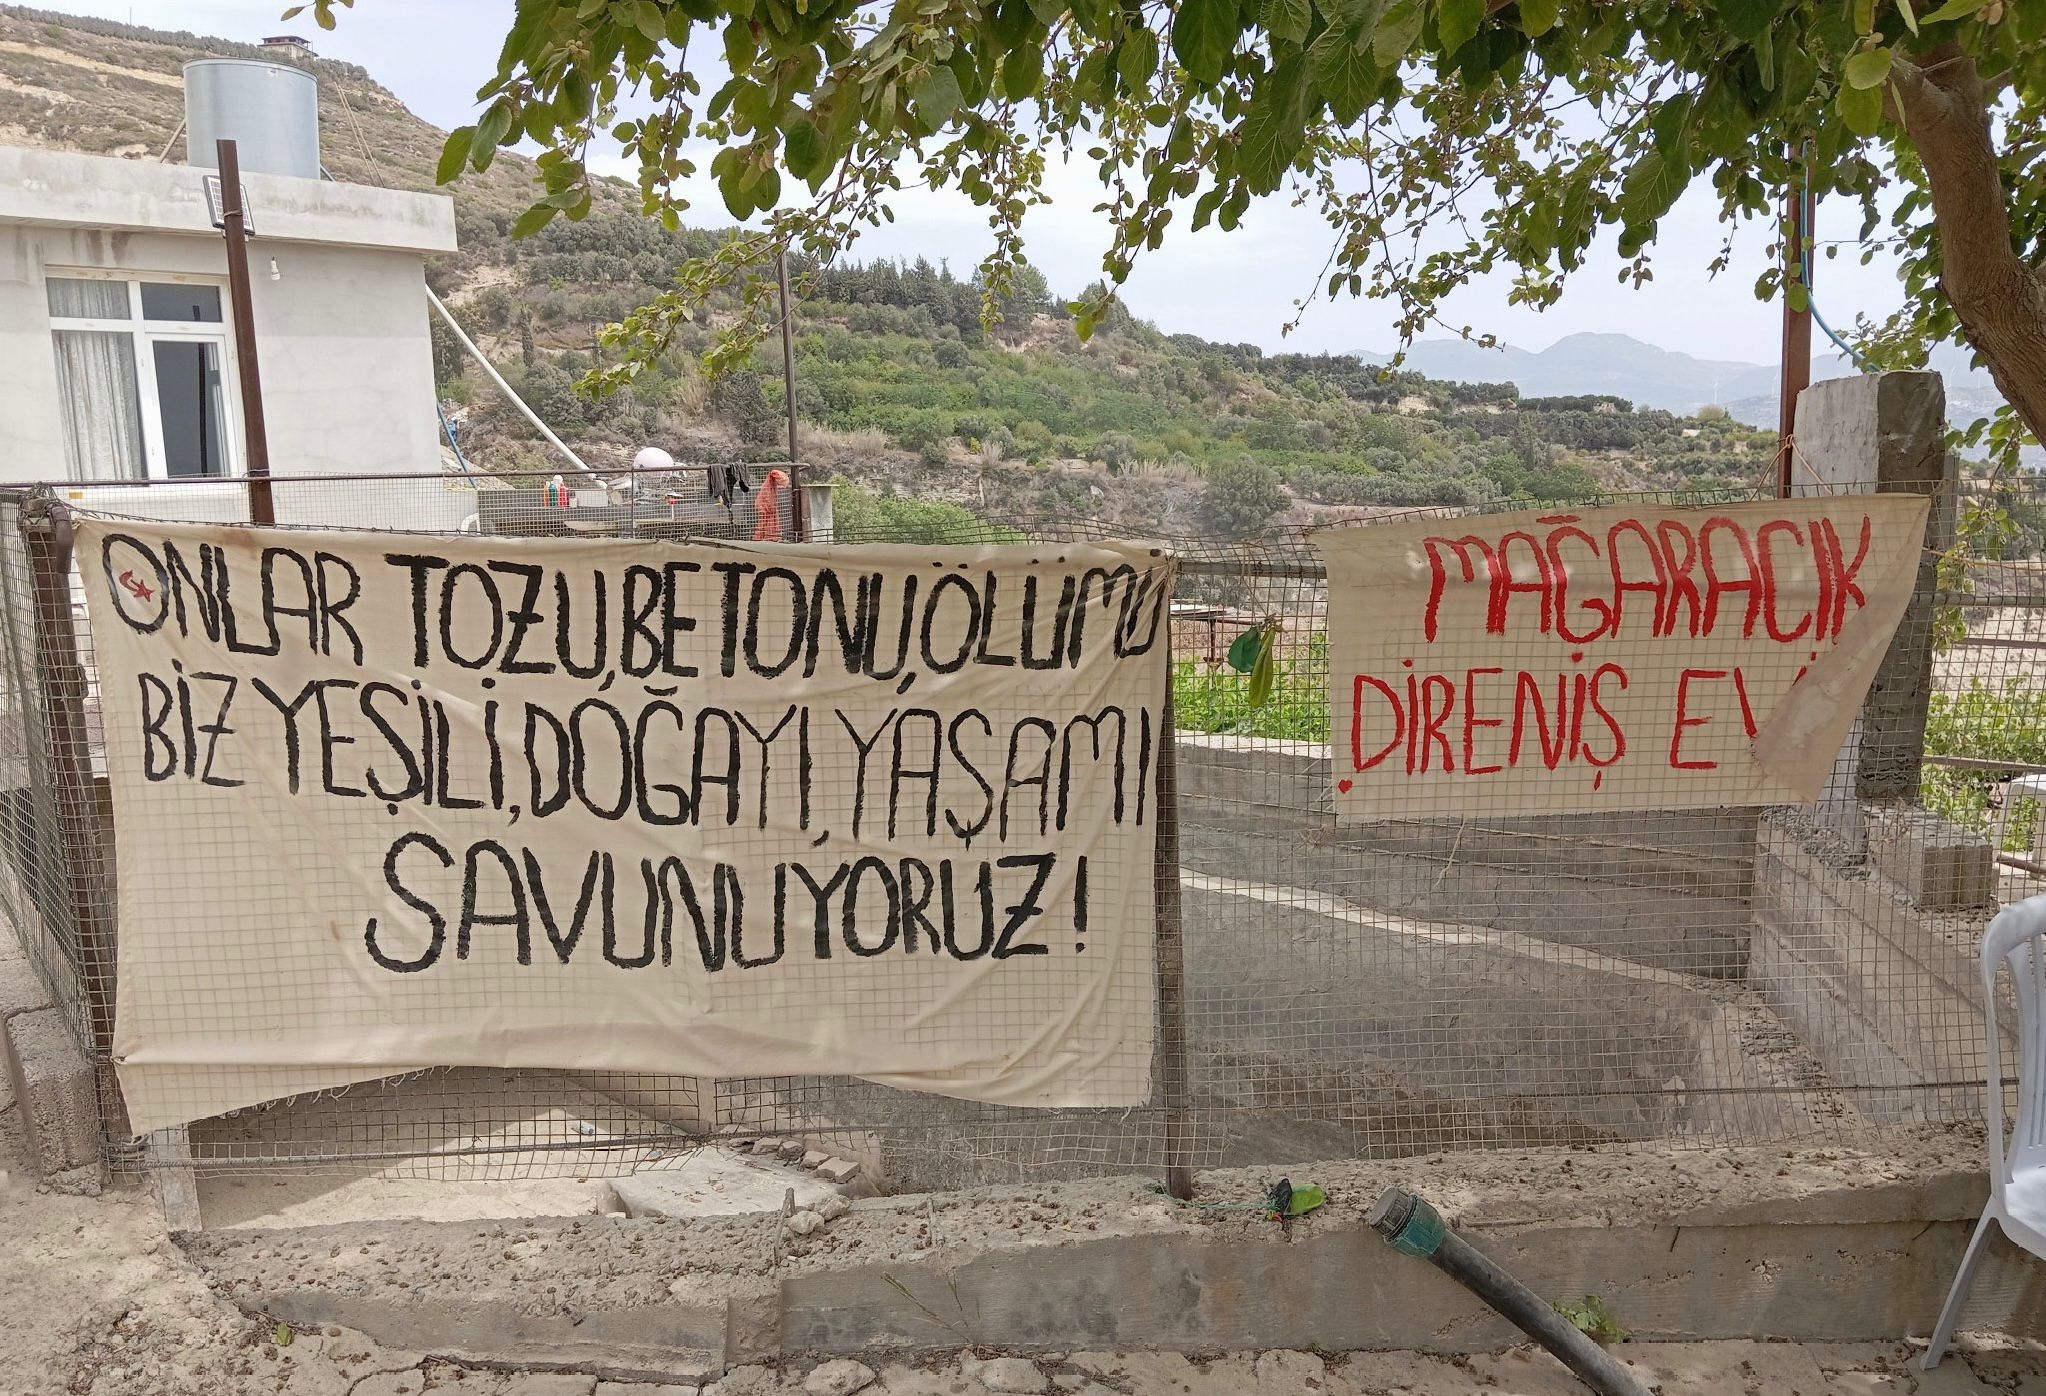 ONLAR TOZU, BETONU, ÖLÜMÜ
BİZ YEŞİLİ, DOĞAYI, YAŞAMI
SAVUNUYORUZ!
MAĞARACIK
DİRENİŞ EVİ